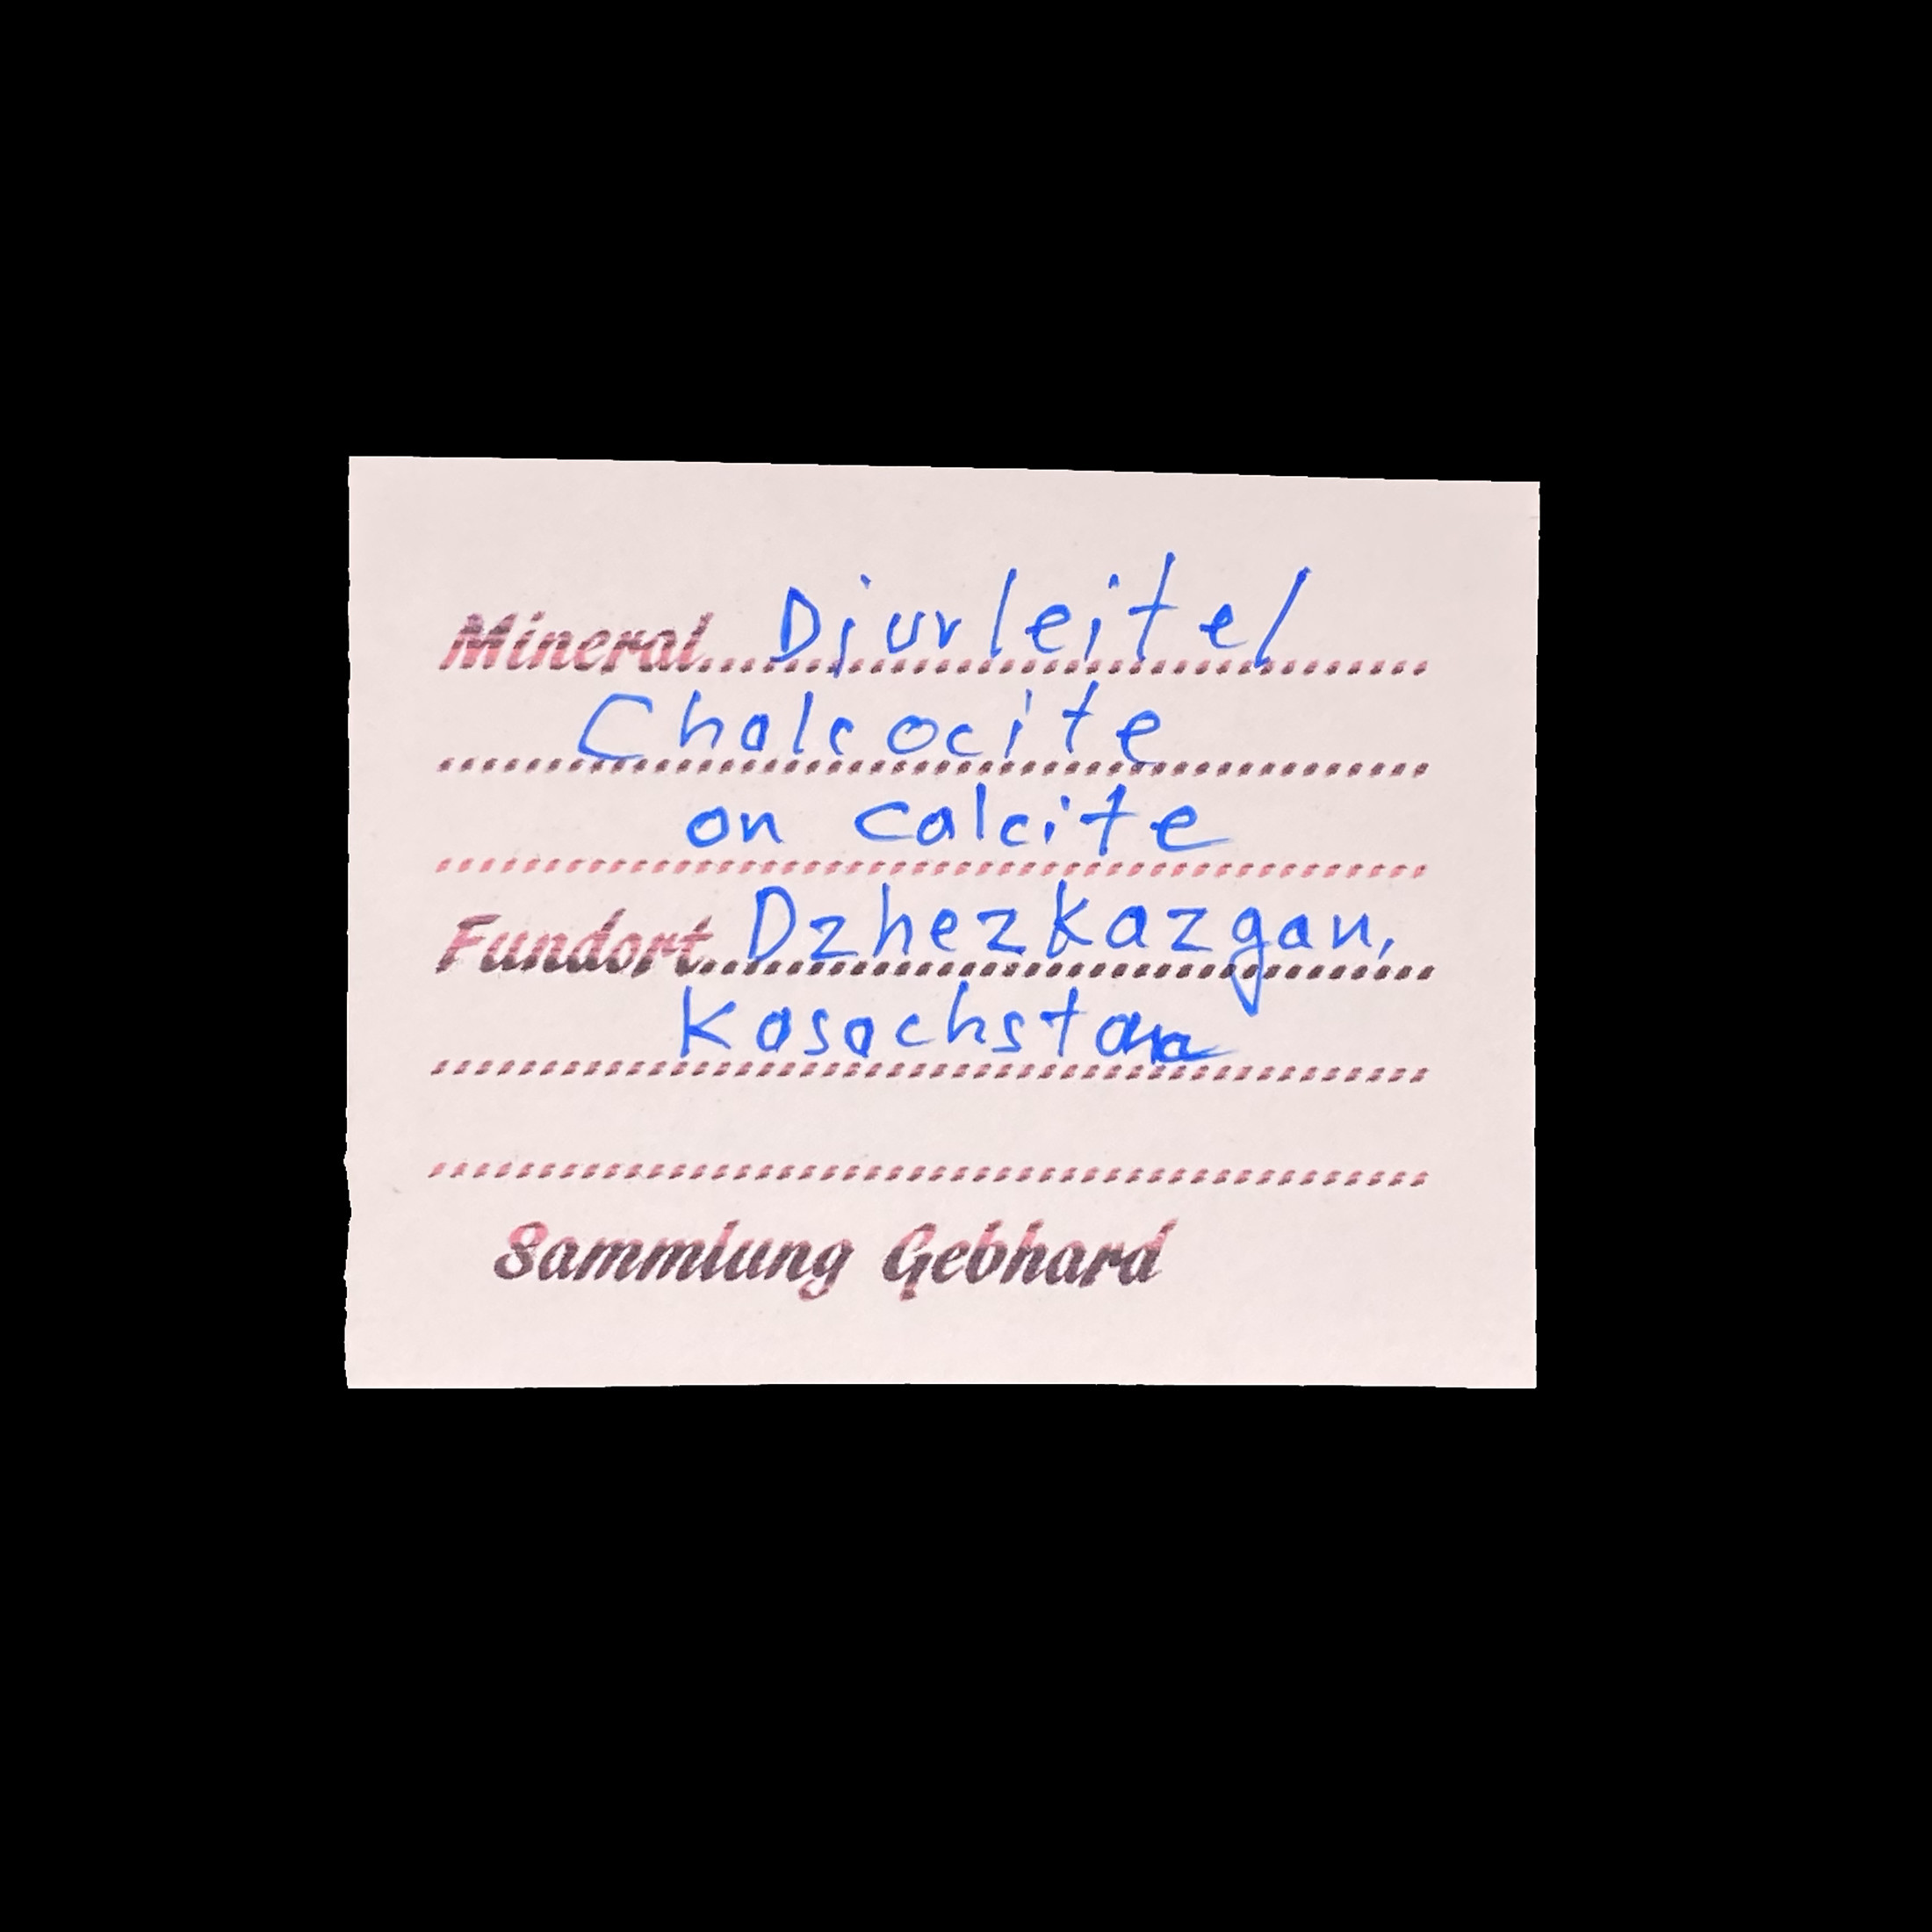 Mineral Djurleite/
Chalcocite
on calcite
Fundort Dzhezkazgan,
Kasachstan
Sammlung Gebhard